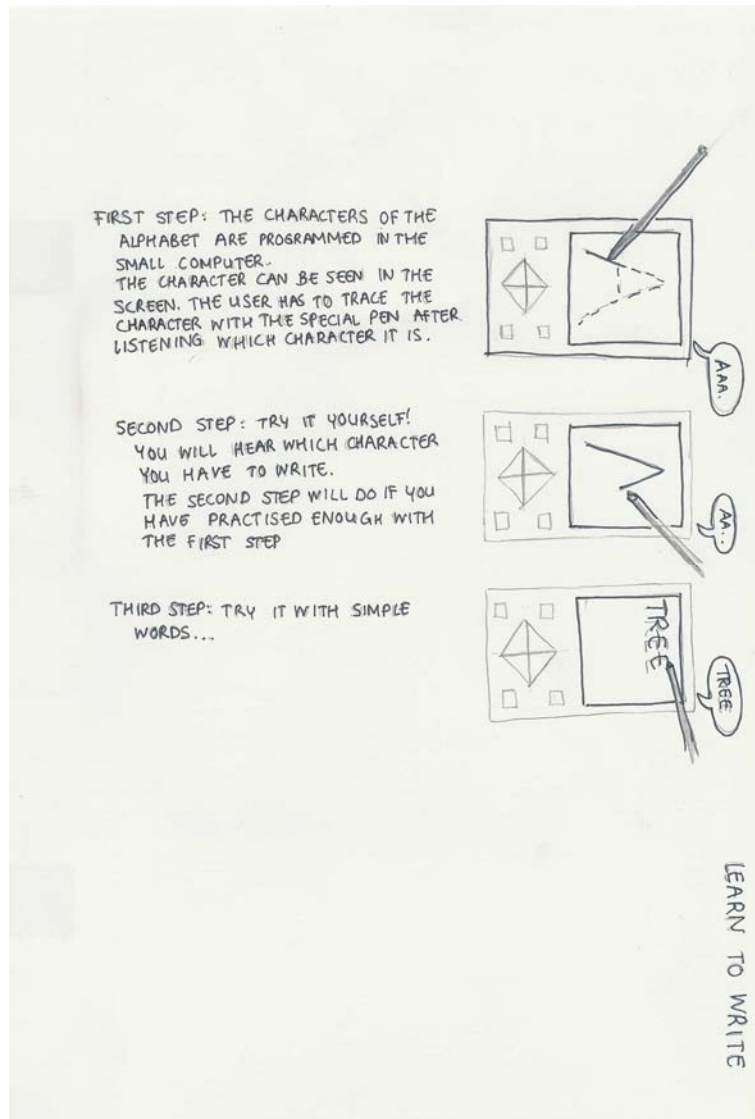 LEARN TO WRITE
FIRST STEP: THE CHARACTERS OF THE
ALPHABET ARE PROGRAMMED IN THE
SMALL COMPUTER..
THE CHARACTER CAN BE SEEN IN THE
SCREEN. THE USER HAS TO TRACE THE
CHARACTER WITH THE SPECIAL PEN AFTER
LISTENING WHICH CHARACTER IT IS.
A
AAA.
SECOND STEP: TRY IT YOURSELF!
YOU WILL HEAR WHICH CHARACTER
YOU HAVE TO WRITE.
THE SECOND STEP WILL DO IF YOU
HAVE PRACTISED ENOUGH WITH
THE FIRST STEP
AA..
THIRD STEP: TRY IT WITH SIMPLE
WORDS...
TREE
TREE